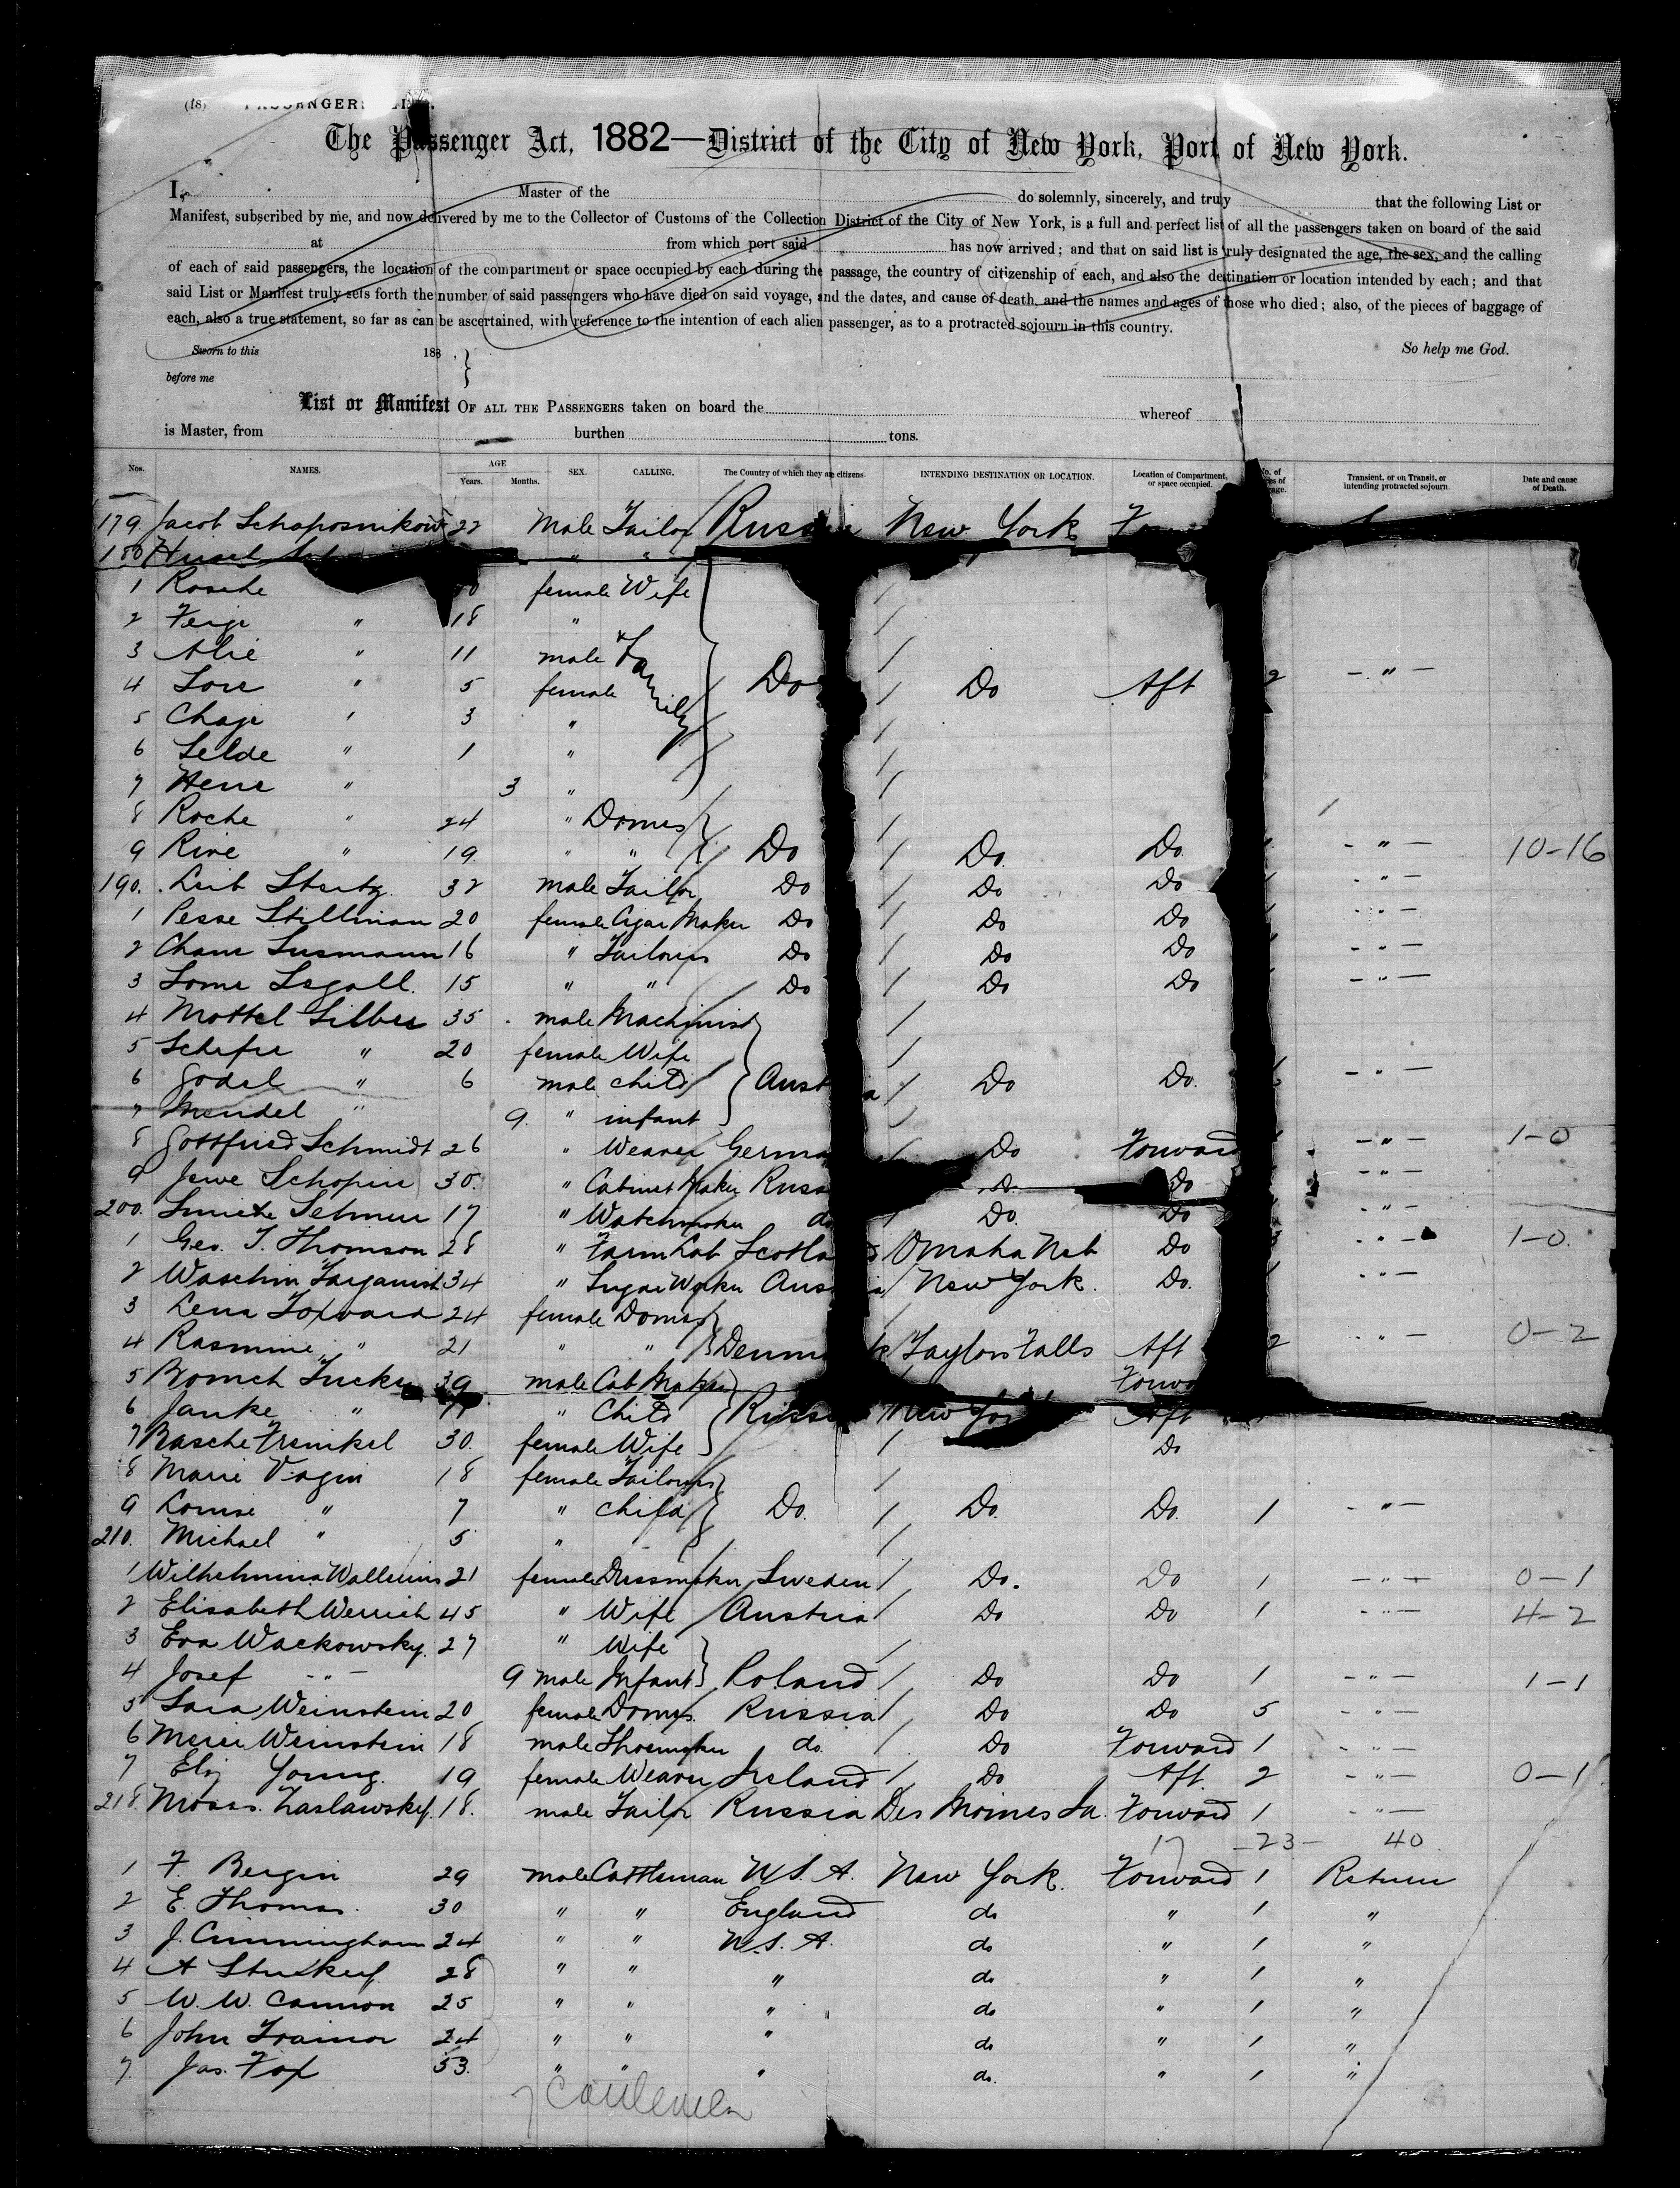 (18)
The Passenger Act, 1882—District of the City of New York, Port of New York.
I, Master of the do solemnly, sincerely, and truly that the following List or
Manifest, subscribed by me, and now delivered by me to the Collector of Customs of the Collection District of the City of New York, is a full and perfect list of all the passengers taken on board of the said
at from which port said has now arrived; and that on said list is truly designated the age, the sex, and the calling
of each of said passengers, the location of the compartment or space occupied by each during the passage, the country of citizenship of each, and also the destination or location intended by each; and that
said List or Manifest truly sets forth the number of said passengers who have died on said voyage, and the dates, and cause of death, and the names and ages of those who died; also, of the pieces of baggage of
each, also a true statement, so far as can be ascertained, with reference to the intention of each alien passenger, as to a protracted sojourn in this country.
Sworn to this 188 So help me God.
before me
List or Manifest OF ALL THE PASSENGERS taken on board the whereof
is Master, from burthen tons.
Nos. NAMES. AGE Years. Months. SEX. CALLING. The Country of which they are citizens. INTENDING DESTINATION OR LOCATION. Location of Compartment, or space occupied. Transient, or on Transit, or intending protracted sojourn. Date and cause of Death.
179 Jacob Schaposnikow 22 Male Tailor Russia New York
180 " "
1 Rosche female Wife
2 Feige " 18 "
3 Alie " 11 male Family
4 Sore " 5 female Do Do Aft 2 - " -
5 Chaje " 3 "
6 Selde " 1 "
7 Hene " 3 "
8 Roche " 24 " Domes
9 Rive " 19 " " Do Do Do - " - 10-16
190 Leib 32 male Tailor Do Do Do - " -
1 Pesse Stillman 20 female Cigar Maker Do Do Do - " -
2 Chane Susmann 16 " Tailoress Do Do Do - " -
3 Some Segall 15 " " Do Do Do - " -
4 Mottel Silber 35 male Machinist
5 " 20 female Wife
6 Godel " 6 male child Austria Do Do - " -
7 Mendel " 9 " infant
8 Gottfried Schmidt 26 " Weaver Germa Do Forward - " - 1-0
9 30 " Cabinet Maker Russ Do - " -
200 17 " Watchmaker do Do Do - " -
1 Geo. T. Thomson 28 " Farm Lab Scotla Omaha Neb Do - " - 1-0
2 34 " Sugar Worker Aus New York Do - " -
3 Lena 24 female Domes
4 Rasmine " 21 " " Denm k Taylors Falls Aft 2 - " - 0-2
5 39 male Cab Maker Forwa
6 Janke " " Child Russi New Yor Aft
7 Basche Frenkel 30 female Wife Do
8 Marie Vagin 18 female Tailoress
9 Louise " 7 " child Do Do Do 1 - " -
210 Michael " 5 "
1 Wilhelmina Wallerius 21 female Dressmaker Sweden Do Do 1 - " - 0-1
2 Elisabeth Werrich 45 " Wife Austria Do Do 1 - " - 4-2
3 Eva Wackowsky 27 " Wife
4 Josef - " - 9 male Infant Poland Do Do 1 - " - 1-1
5 Sara Weinstein 20 female Domes Russia Do Do 5 - " -
6 Meier Weinstein 18 male Shoemaker do Do Forward 1 - " -
7 Eliz Young 19 female Weaver Ireland Do Aft 2 - " - 0-1
218 Moses Zaslawsky 18 male Tailor Russia Des Moines Ia. Forward 1 - " -
17 -23- 40
1 F. Bergin 29 male Cattleman U.S.A. New York Forward 1 Return
2 E. Thomas 30 " " England do " 1 "
3 J. Cunningham 24 " " U.S.A. do " 1 "
4 A Stuckey 28 " " " do " 1 "
5 W. W. Cannon 25 " " " do " 1 "
6 John Trainor 24 " " " do " 1 "
7 Jas. Fox 53 " " " do " 1 "
7 Cattlemen